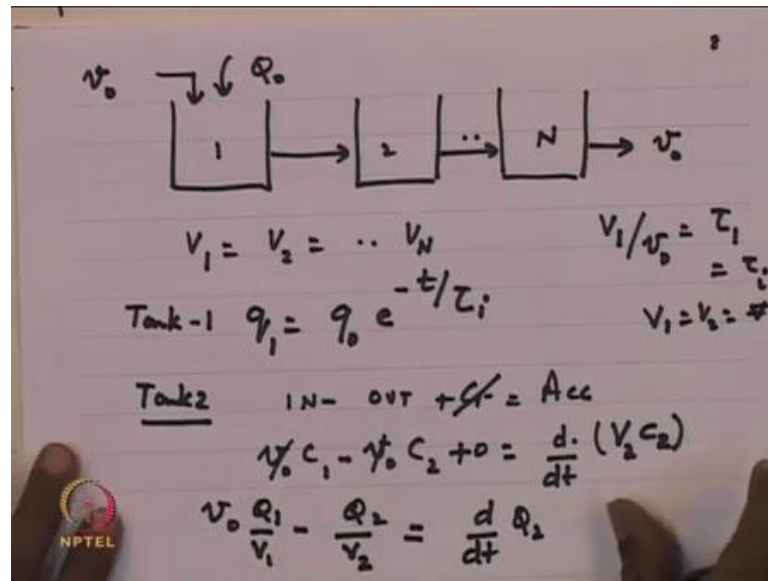 8
v₀ Q₀
1 2 .. N v₀
V₁ = V₂ = .. V_N V₁/v₀ = τ₁
= τᵢ
Tank-1 q₁ = q₀ e^(-t/τᵢ) V₁ = V₂ =
Tank 2 IN - OUT + G = Acc
v₀ C₁ - v₀ C₂ + 0 = d/dt (V₂ C₂)
v₀ Q₁/V₁ - Q₂/V₂ = d/dt Q₂
NPTEL